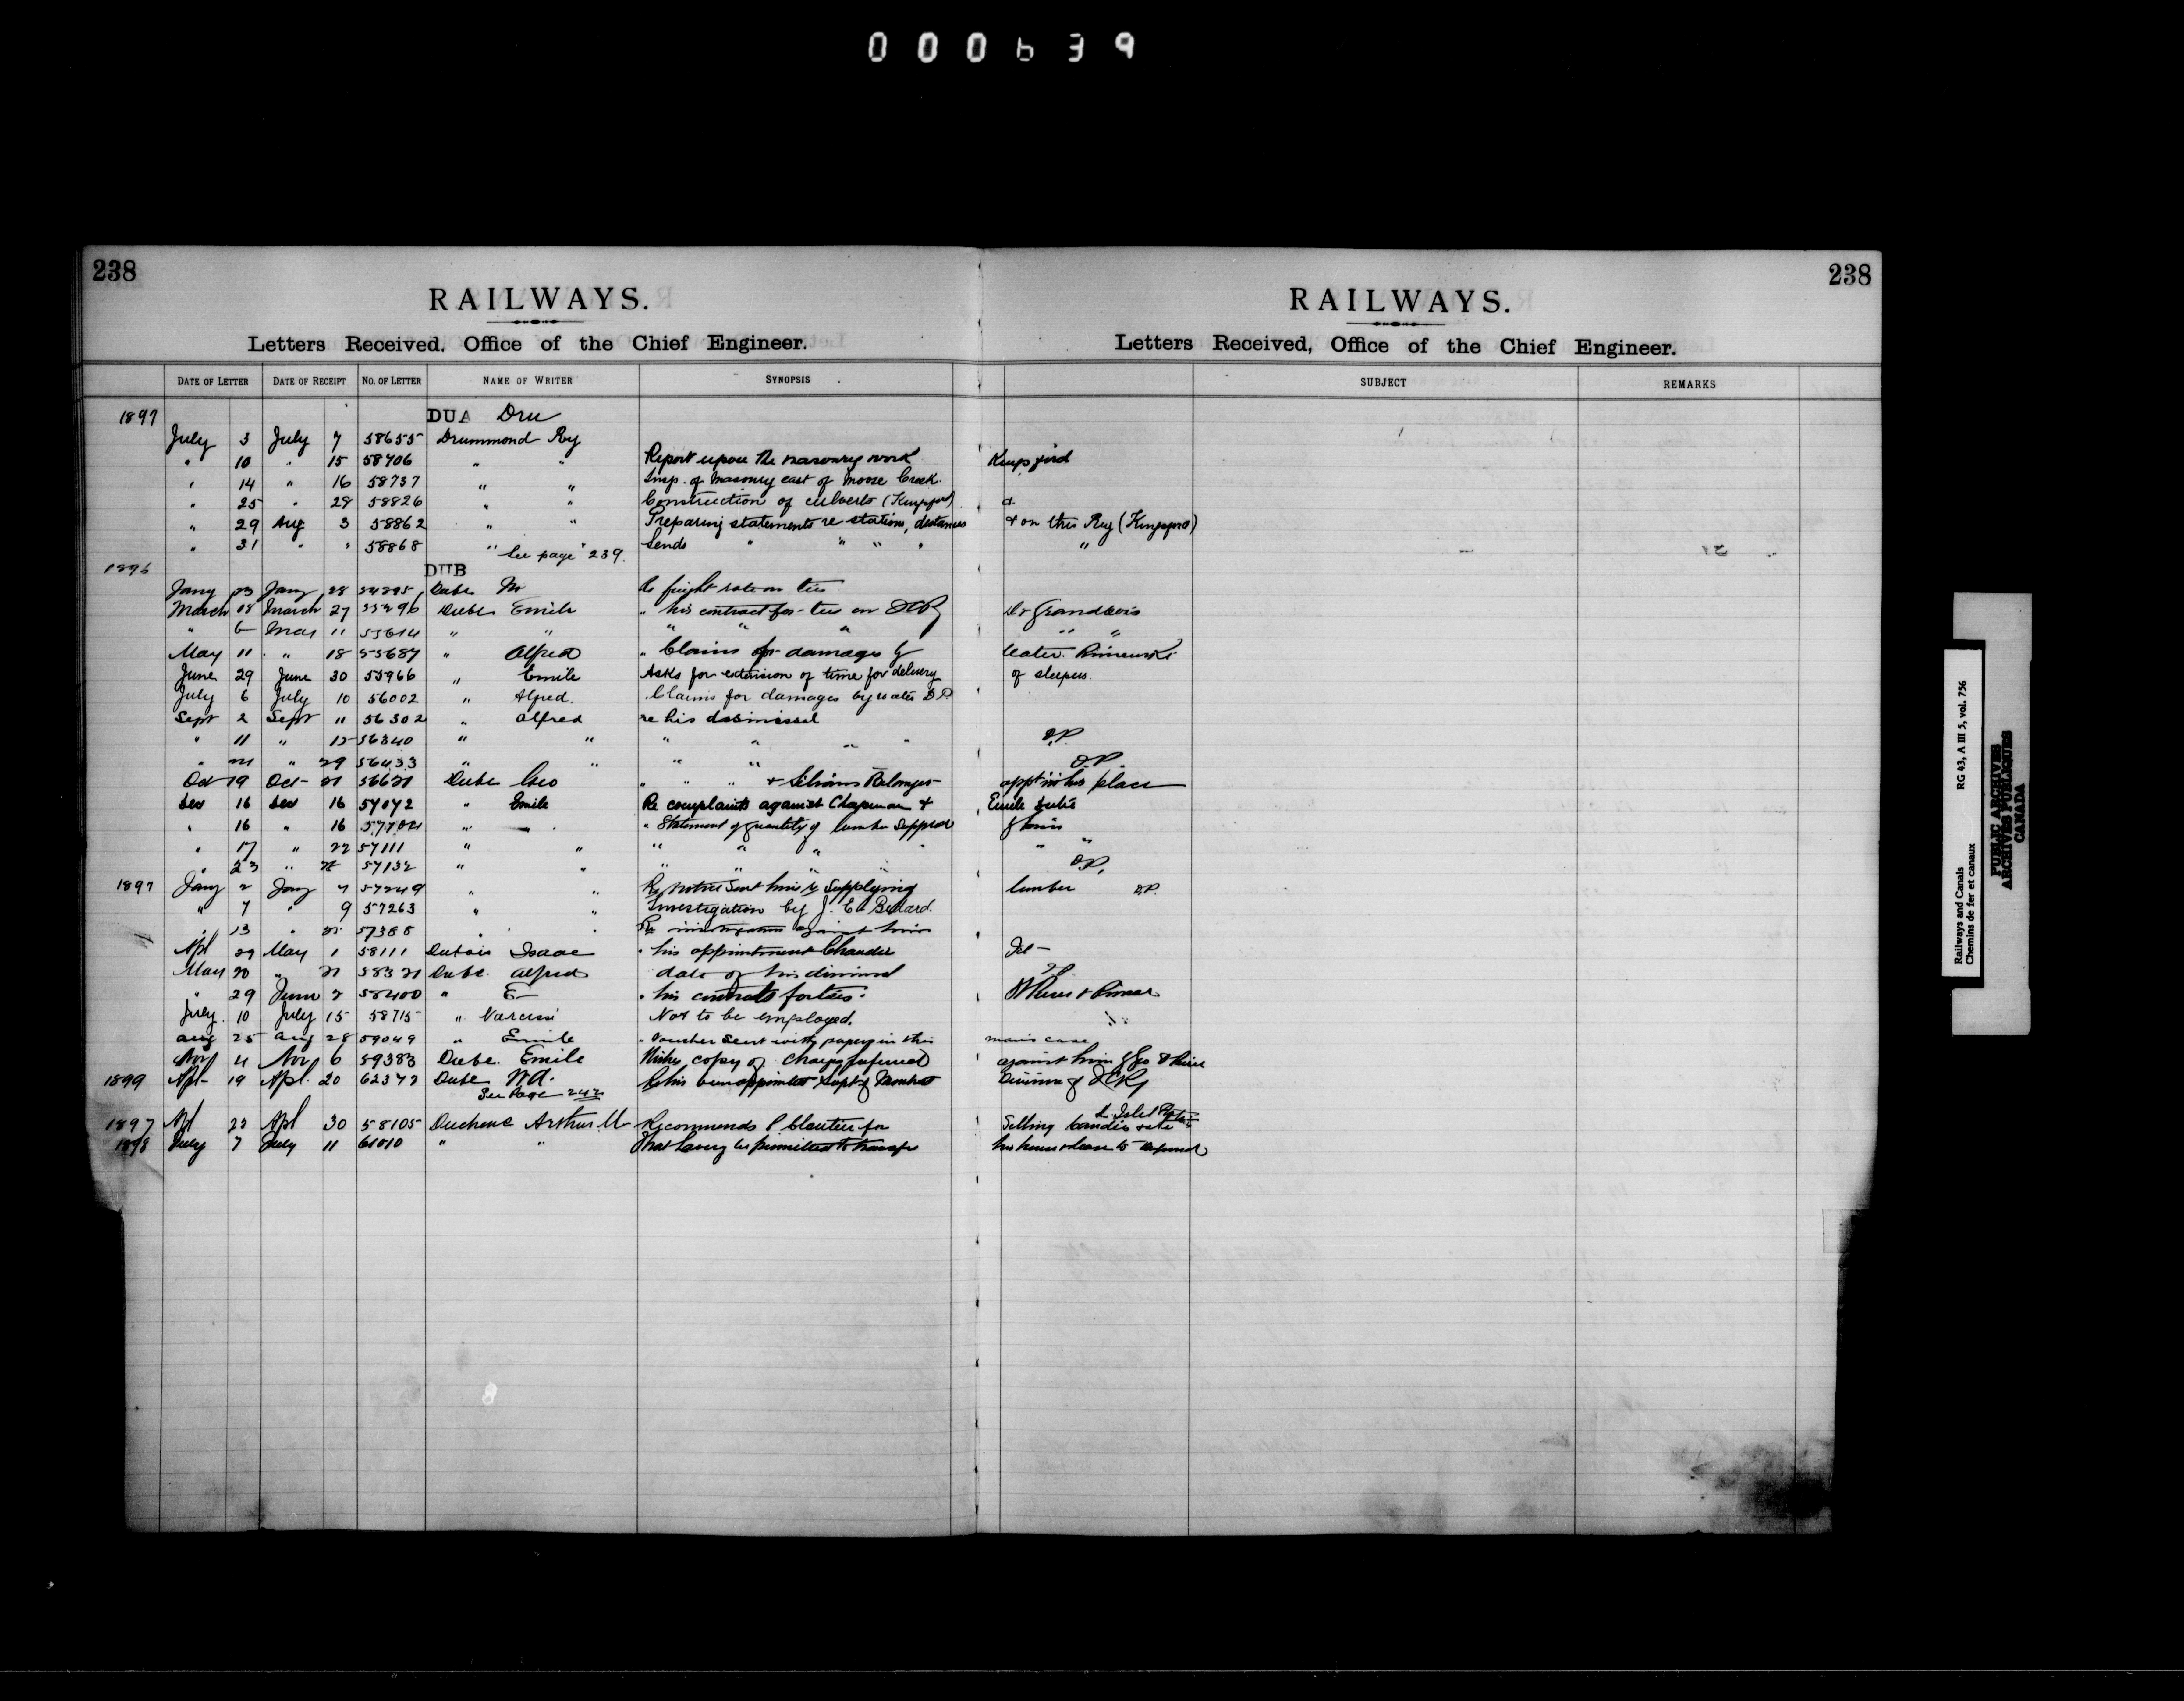 000639
238
238
RAILWAYS.
RAILWAYS.
Letters Received, Office of the Chief Engineer.
Letters Received, Office of the Chief Engineer.
DATE OF LETTER DATE OF RECEIPT NO. OF LETTER NAME OF WRITER SYNOPSIS SUBJECT REMARKS
1897 DUA Dru
July 3 July 7 58655 Drummond Ry
" 10 " 15 58706 " " Report upon the masonry work Kingsford
" 14 " 16 58737 " " Insp. of Masonry east of Moose Creek.
" 25 " 28 58826 " " Construction of culverts (Kingsford)
" 29 Aug 3 58862 " " Preparing statements re stations, distances & on this Ry (Kingsford)
" 31 " " 58868 " See page 239. Sends " " " " "
1896 DUB
Jany 23 Jany 28 Dube Re freight rate on ties
March 18 March 27 Dube Emile " his contract for ties on ICRy
" 6 Mar 11 55614 " " " " "
May 11 " 18 55687 " Alfred " Claims for damages by water
June 29 June 30 55966 " Emile Asks for extension of time for delivery of sleepers.
July 6 July 10 56002 " Alfred. Claims for damages by water D.P.
Sept 2 Sept 11 56302 " Alfred re his dismissal
" 11 " 56340 " " " " " " D.P.
" " 29 56433 " " " " D.P.
Oct 19 Oct 21 56621 Dube Geo " " " & Belanger appt in his place
Dec 16 Dec 16 57072 " Emile Re complaints against Chapman & Emile Dubé
" 16 " 16 " " Statement of quantity of lumber
" 17 " 22 57111 " " " " " " " "
" 23 " 57132 " " " " " " D.P.
1897 Jany 2 Jany 7 57249 " " Re notice sent him re supplying lumber D.P.
" 7 " 9 57263 " " Investigation by J. E.
" 13 " 57388 " " Re investigation against him
Apl 29 May 1 58111 Dubois Isaac " his appointment
May 20 " 21 58321 Dube Alfred date of his dismissal
" 29 June 2 58400 " E " his contracts for ties
July 10 July 15 58715 " Narcisse Not to be employed.
Aug 25 Aug 28 59049 " Emile " Voucher sent with papers in this man's case
Nov 4 Nov 6 59383 Dube Emile Wishes copy of charges preferred against him
1899 Apl 19 Apl. 20 62372 Dube
See Page 242
1897 Apl 22 Apl 30 58105 Duchene Arthur M Recommends P Cloutier for selling candies
1898 July 7 July 11 61010 " " That be permitted to transfer his house & lease to
Railways and Canals RG 43, A III 5, vol. 756
Chemins de fer et canaux
PUBLIC ARCHIVES
ARCHIVES PUBLIQUES
CANADA